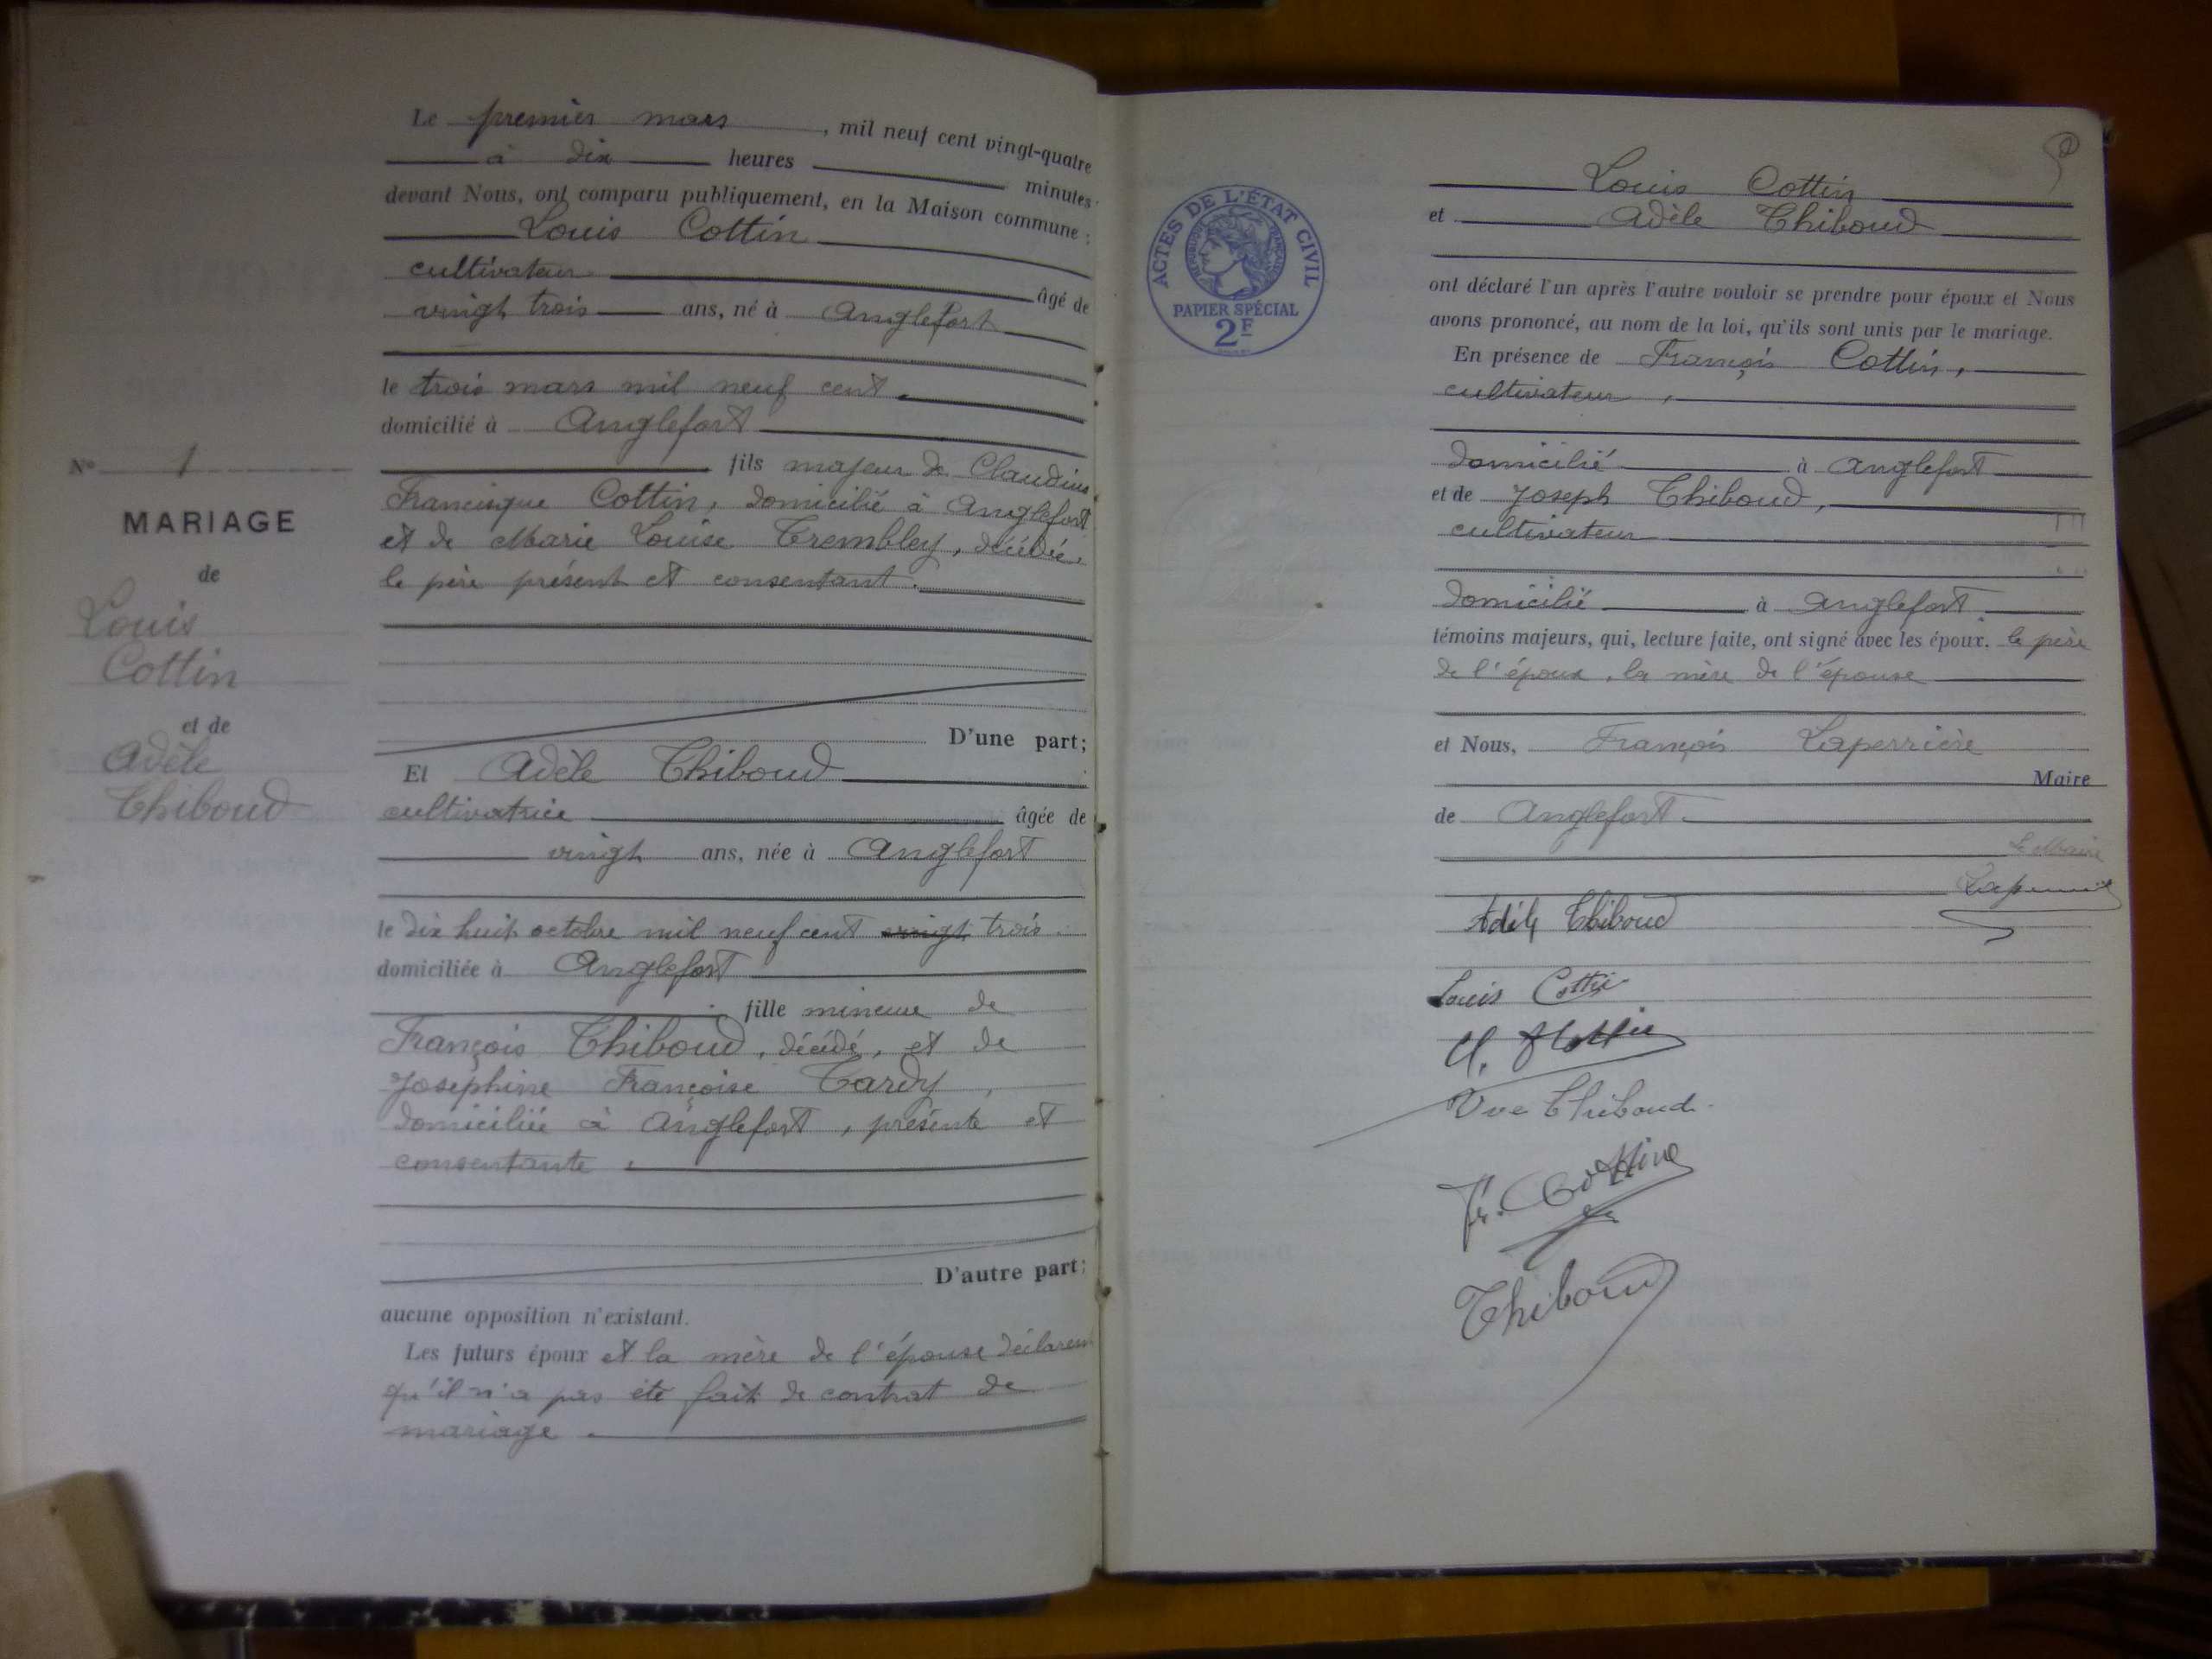 Le premier mars, mil neuf cent vingt-quatre
à dix heures minutes
devant Nous, ont comparu publiquement, en la Maison commune :
Louis Cottin
cultivateur âgé de
vingt trois ans, né à Anglefort
le trois mars mil neuf cent.
domicilié à Anglefort
fils majeur de Claudius
Francisque Cottin, domicilié à Anglefort
et de Marie Louise Trembley, décédée.
le père présent et consentant.
D'une part;
Et Adèle Thiboud
cultivatrice âgée de
vingt ans, née à Anglefort
le dix huit octobre mil neuf cent vingt trois.
domiciliée à Anglefort
fille mineure de
François Thiboud, décédé, et de
Joséphine Françoise Tardy,
domiciliée à Anglefort, présente et
consentante.
D'autre part;
aucune opposition n'existant.
Les futurs époux et la mère de l'épouse déclarent
qu'il n'a pas été fait de contrat de
mariage.
No 1
MARIAGE
de
Louis
Cottin
et de
Adèle
Thiboud
ACTES DE L'ÉTAT CIVIL
RÉPUBLIQUE FRANÇAISE
PAPIER SPÉCIAL
2F
Louis Cottin
et Adèle Thiboud
ont déclaré l'un après l'autre vouloir se prendre pour époux et Nous
avons prononcé, au nom de la loi, qu'ils sont unis par le mariage.
En présence de François Cottin,
cultivateur,
domicilié à Anglefort
et de Joseph Thiboud,
cultivateur
domicilié à Anglefort
témoins majeurs, qui, lecture faite, ont signé avec les époux, le père
de l'époux, la mère de l'épouse
et Nous, François Laperrière
Maire
de Anglefort.
Le Maire
Adèle Thiboud
Louis Cottin
Vve Thiboud.
Fr. Cottin
Thiboud